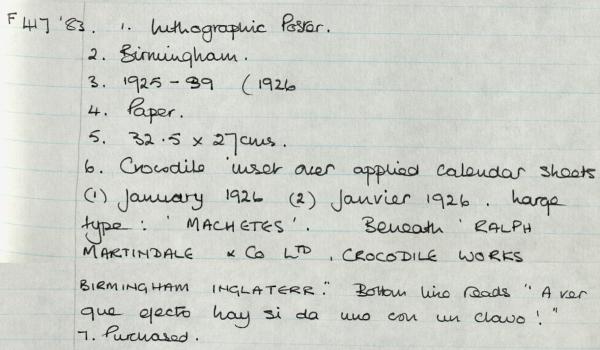 F417'83. 1. Lithographic Poster.
2. Birmingham.
3. 1925-39 (1926
4. Paper.
5. 32.5 x 27cms.
6. Crocodile inset over applied calendar sheets
(1) January 1926 (2) Janvier 1926. Large
type: 'MACHETES'. Beneath 'RALPH
MARTINDALE & Co LTD, CROCODILE WORKS
BIRMINGHAM INGLATERR." Bottom line reads "A ver
que efecto hay si da uno con un clavo!"
7. Purchased.